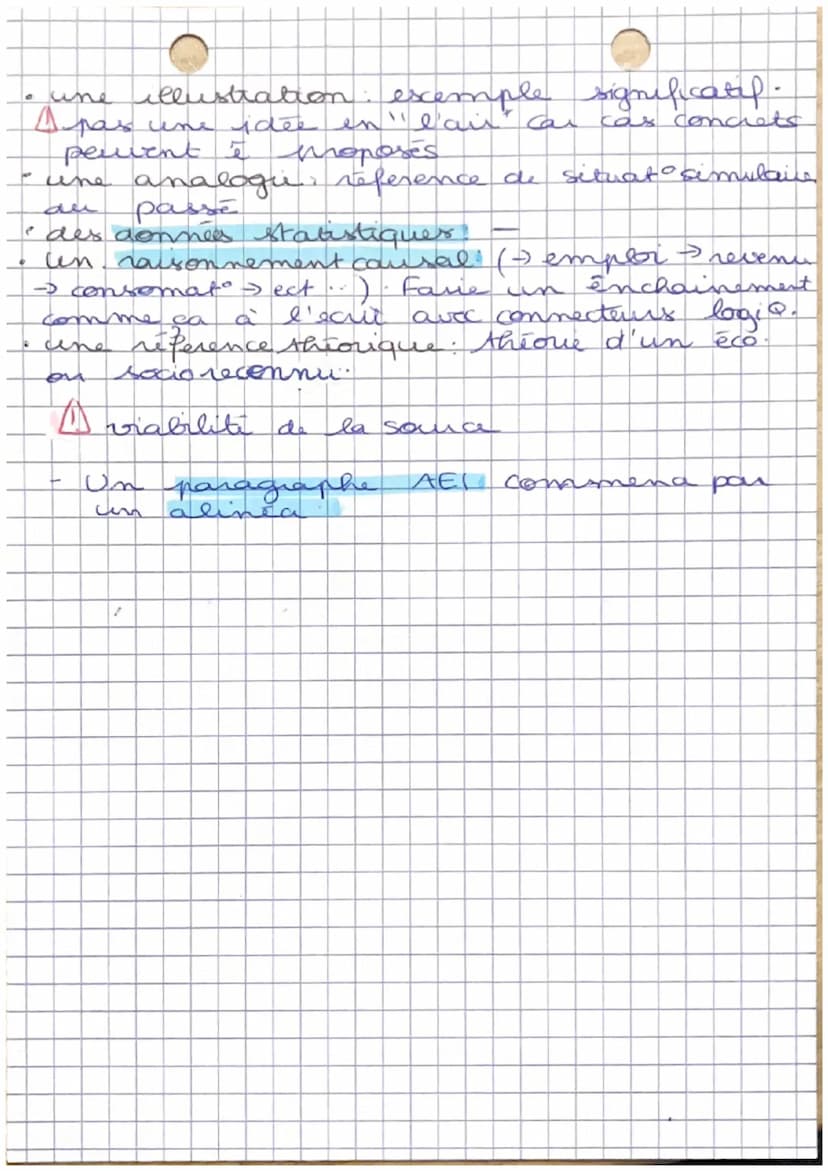 • une illustration : exemple significatif.
⚠ pas une idée en "l'air" car cas concrets
peuvent ê proposés
- une analogie : réference de situat° simulaire
au passé
• des données statistiques : —
• un raisonnement causal : (→ emploi → revenu
→ consomat° → ect ...). Faire un énchainement
comme ça à l'écrit avec connecteurs logiQ.
• une réference théorique : théorie d'un éco.
ou socio reconnu.
⚠ viabilité de la source
- Un paragraphe AEI commence par
un alinéa